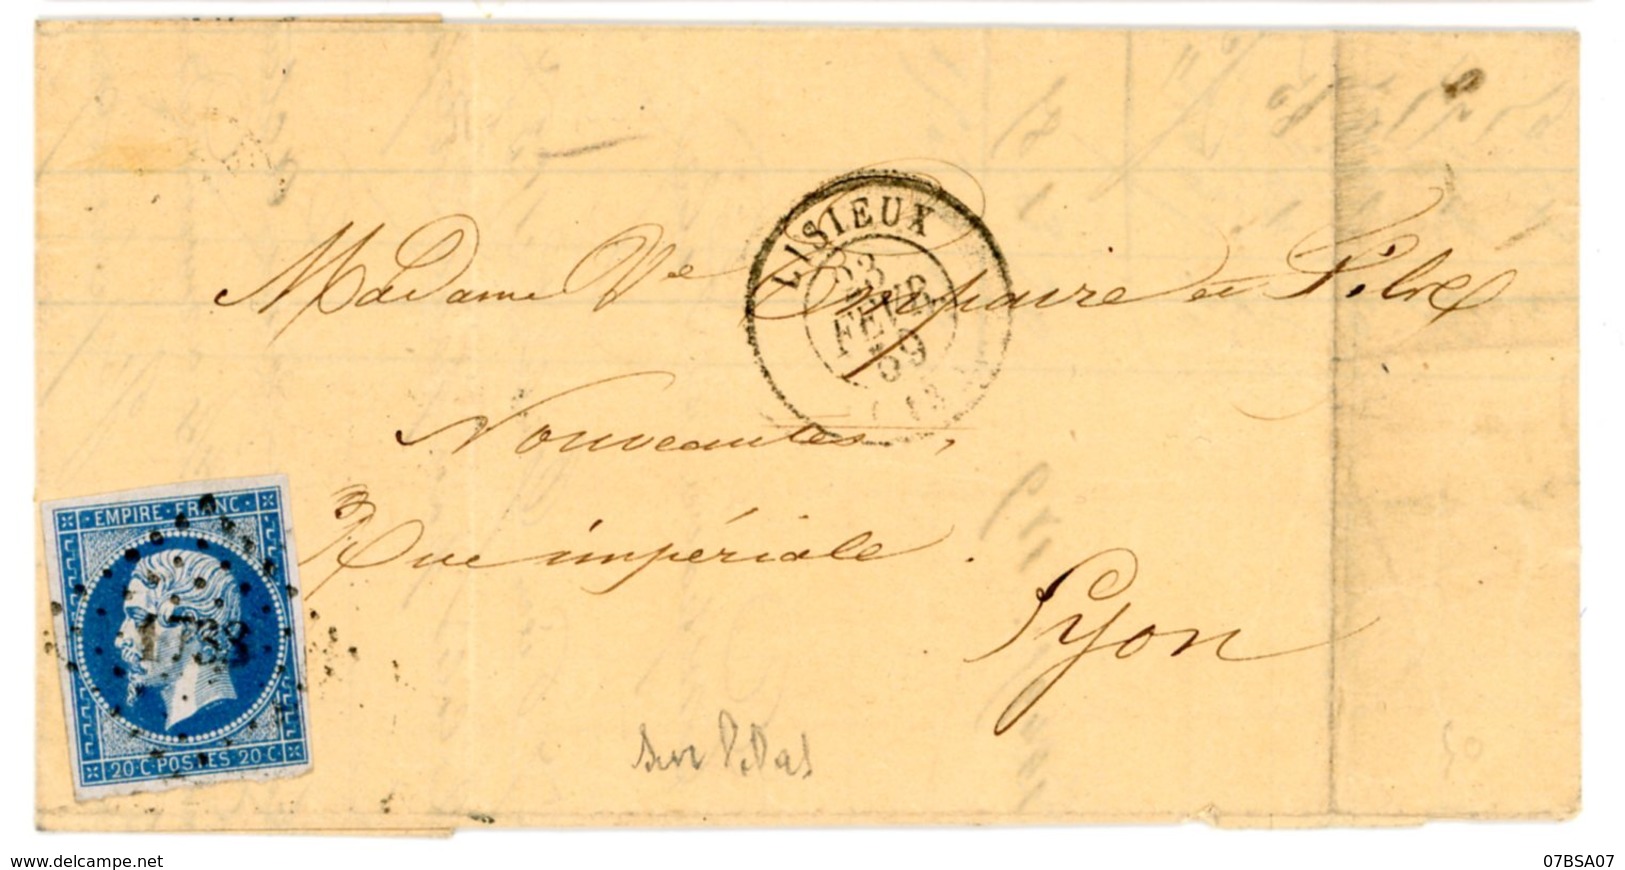 LISIEUX
23
FEVR
59
(13)
Madame Ve Empaire et Fils
Nouveautés,
Rue impériale.
Lyon
EMPIRE FRANC
1738
20·C·POSTES·20·C·
50
delcampe.net
07BSA07